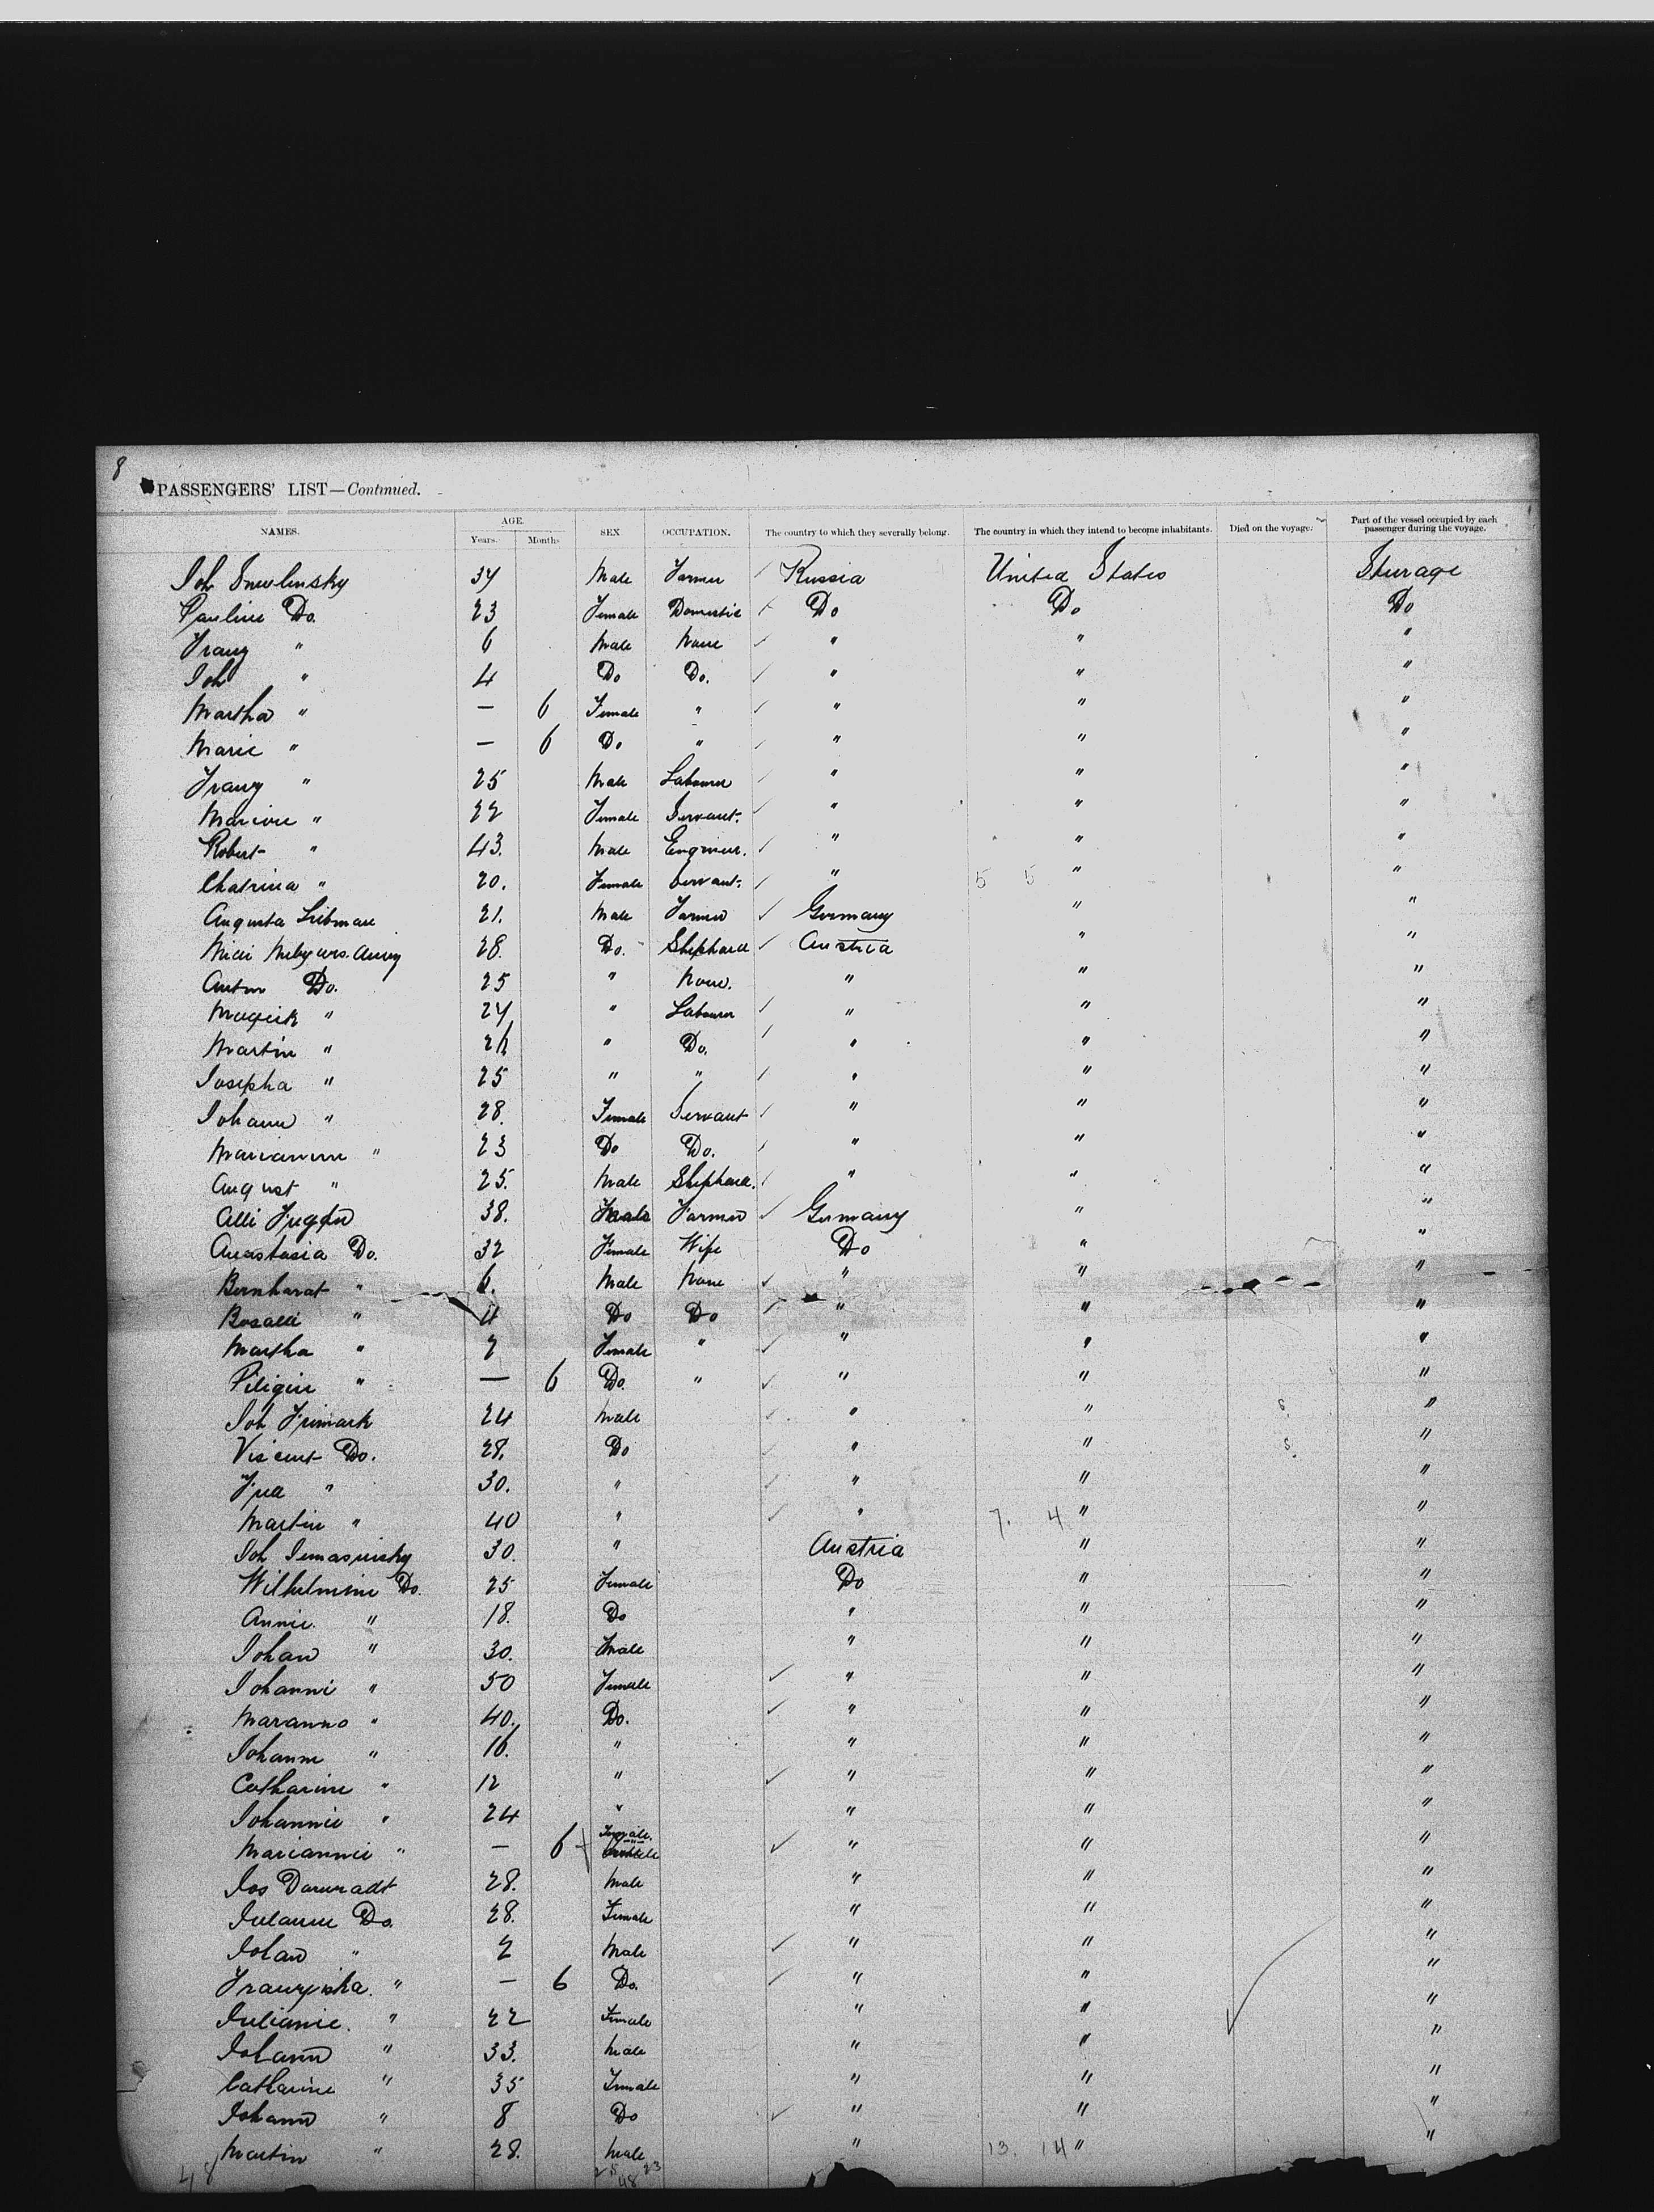 8
PASSENGERS' LIST—Continued.
AGE.
NAMES. Years. Months SEX OCCUPATION. The country to which they severally belong. The country in which they intend to become inhabitants. Died on the voyage. Part of the vessel occupied by each passenger during the voyage.
Joh 34 Male Farmer Russia United States Steerage
Pauline Do. 23 Female Domestic Do Do Do
Franz " 6 Male None " " "
Joh " 4 Do Do. " " "
Martha " — 6 Female " " " "
Marie " — 6 Do " " " "
Franz " 25 Male Labourer " " "
" 22 Female Servant. " " "
Robert " 43. Male Engineer. " " "
Chatrina " 20. Female Servant. " 5 5 " "
Augusta Libman 21. Male Farmer Germany " "
28. Do. Shephard Austria " "
Anton Do. 25 " None. " " "
" 24 " Labourer " " "
Martin " 26 " Do. " " "
Josepha " 25 " " " " "
Johann " 28. Female Servant " " "
" 23 Do Do. " " "
August " 25. Male Shephard. " " "
38. Male Farmer Germany " "
Anastasia Do. 32 Female Wife Do " "
Bernhardt " 6. Male None " " "
" 4 Do Do " " "
Martha " 2 Female " " " "
" — 6 Do. " " " "
Joh 24 Male " " "
Vincent Do. 28. Do " " "
" 30. " " " "
Martin " 40 " " 7. 4 " "
Joh 30. " Austria " "
Wilhelmine Do. 25 Female Do " "
Annie. " 18. Do " " "
Johan " 30. Male " " "
Johanni " 50 Female " " "
Maranno " 40. Do. " " "
Johann " 16. " " " "
Catharine " 12 " " " "
Johannie " 24 " " " "
Mariannie " — 6 Female. " " "
Jos 28. Male " " "
Do. 28. Female " " "
Johan " 2 Male " " "
Franziska. " — 6 Do. " " "
Julianie. " 22 Female " " "
Johann " 33. Male " " "
Catharine " 35 Female " " "
Johann " 8 Do " " "
Martin " 28. Male " 13. 14 " "
48 25 23
48